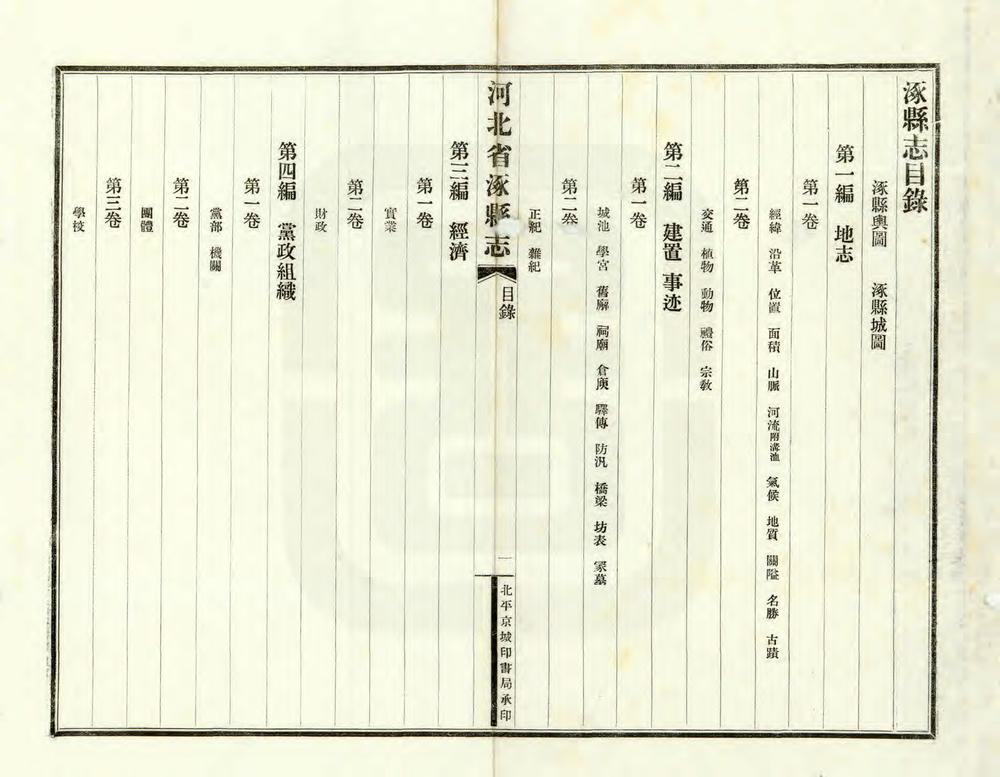 涿縣志目錄
涿縣輿圖　涿縣城圖
第一編　地志
第一卷
經緯　沿革　位置　面積　山脈　河流附溝洫　氣候　地質　關隘　名勝　古蹟
第二卷
交通　植物　動物　禮俗　宗敎
第二編　建置　事迹
第一卷
城池　學宮　舊廨　祠廟　倉庾　驛傳　防汛　橋梁　坊表　冢墓
第二卷
正紀　雜紀
河北省涿縣志　目錄　一　北平京城印書局承印
第三編　經濟
第一卷
實業
第二卷
財政
第四編　黨政組織
第一卷
黨部　機關
第二卷
團體
第三卷
學校